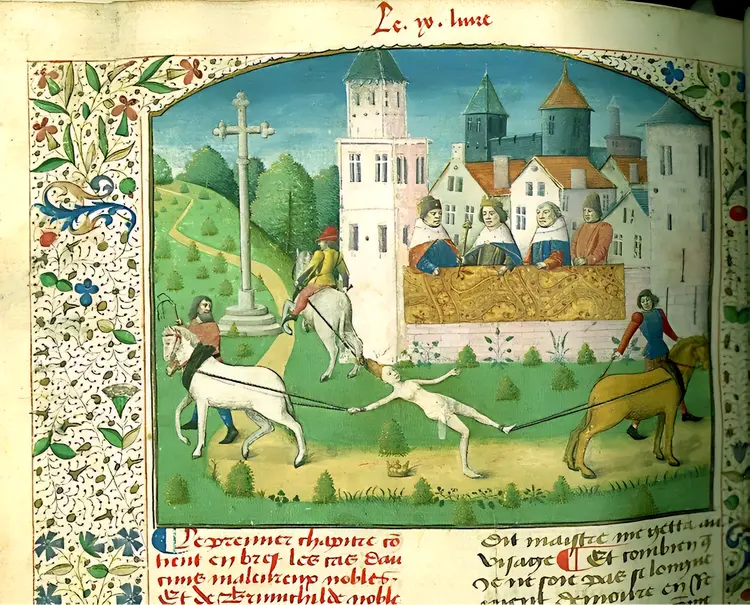 Le. ix. liure
Le premier chapitre cō
tient en bref les cas dau
cuns maleureux nobles.
Et de Brunichilde noble
Dit maistre me getta au
visage Et combien q̄
Je ne soie pas si longue
ment demoure en ce